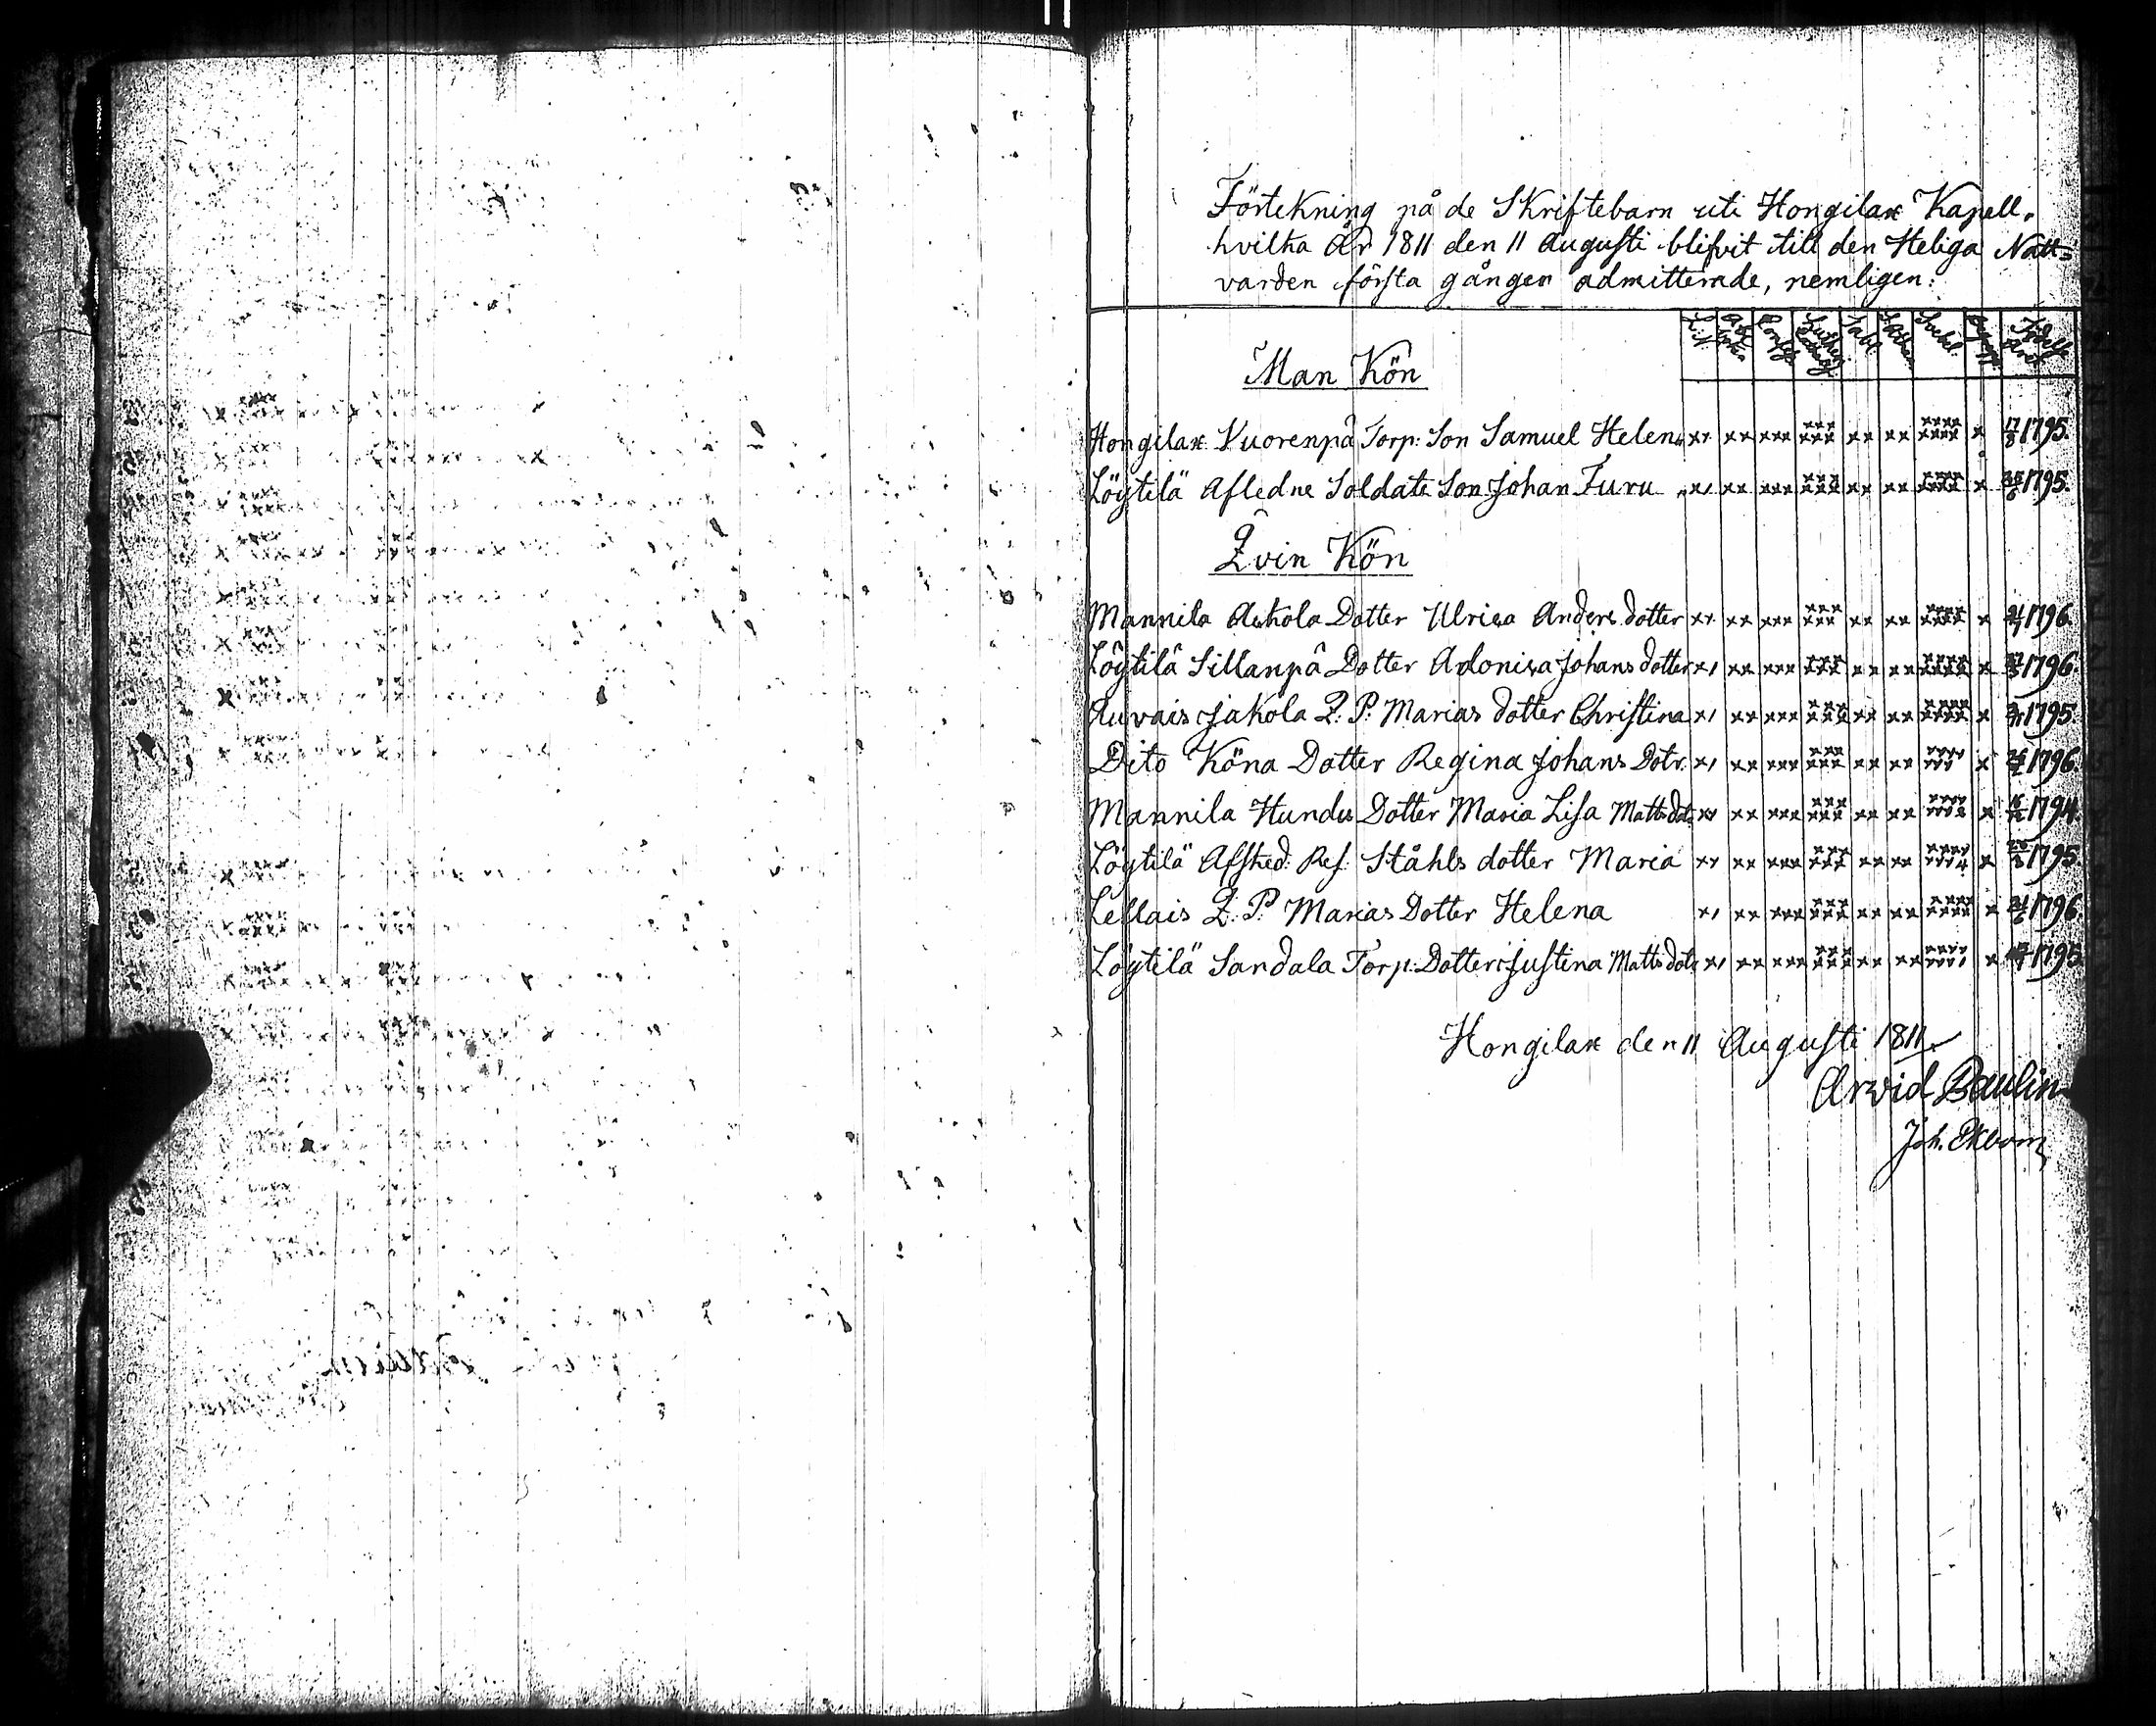 Förtekning på de Skriftebarn uti Hongilax Kapell.
hvilka År 1811 den 11 Augusti blifvit till den Heliga Natt=
varden första gången admitterade, nemligen:
Man Kön
Hongilax Kuorenpä Torp: Son Samuel Helen xx xx xxx xxx xxx xx xx xxxx xxxx x 1795.
Löytilä Afledne Soldats Son Johan Furu xx xx xxx xxx xxx xx xx xxxx xxxx x 1795.
Qvin Kön
Mannila Askola Dotter Ulrica Anders dotter xx xx xxx xxx xxx xx xx xxxx xxxx x 1796.
Löytilä Sillanpä Dotter Johans dotter xx xx xxx xxx xxx xx xx xxxx xxxx x 1796.
Auvais Jakola Q. P. Marias dotter Christina xx xx xxx xxx xxx xx xx xxxx xxxx x 1795.
Dito Köna Dotter Regina Johans Dotr. xx xx xxx xxx xxx xx xx x 1796.
Mannila Hundus Dotter Maria Lisa Matts dotr xx xx xxx xxx xxx xx xx x 1794.
Löytilä Afsked. Ståhls dotter Maria xx xx xxx xxx xxx xx xx x 1795.
Lellais Q. P. Marias Dotter Helena xx xx xxx xxx xxx xx xx xxxx xxxx x 1796.
Löytilä Sandala Torp: Dotter Justina Matts dotr xx xx xxx xxx xxx xx xx x 1795
Hongilax den 11 Augusti 1811.
Arvid Paulin
Joh. Ekbom